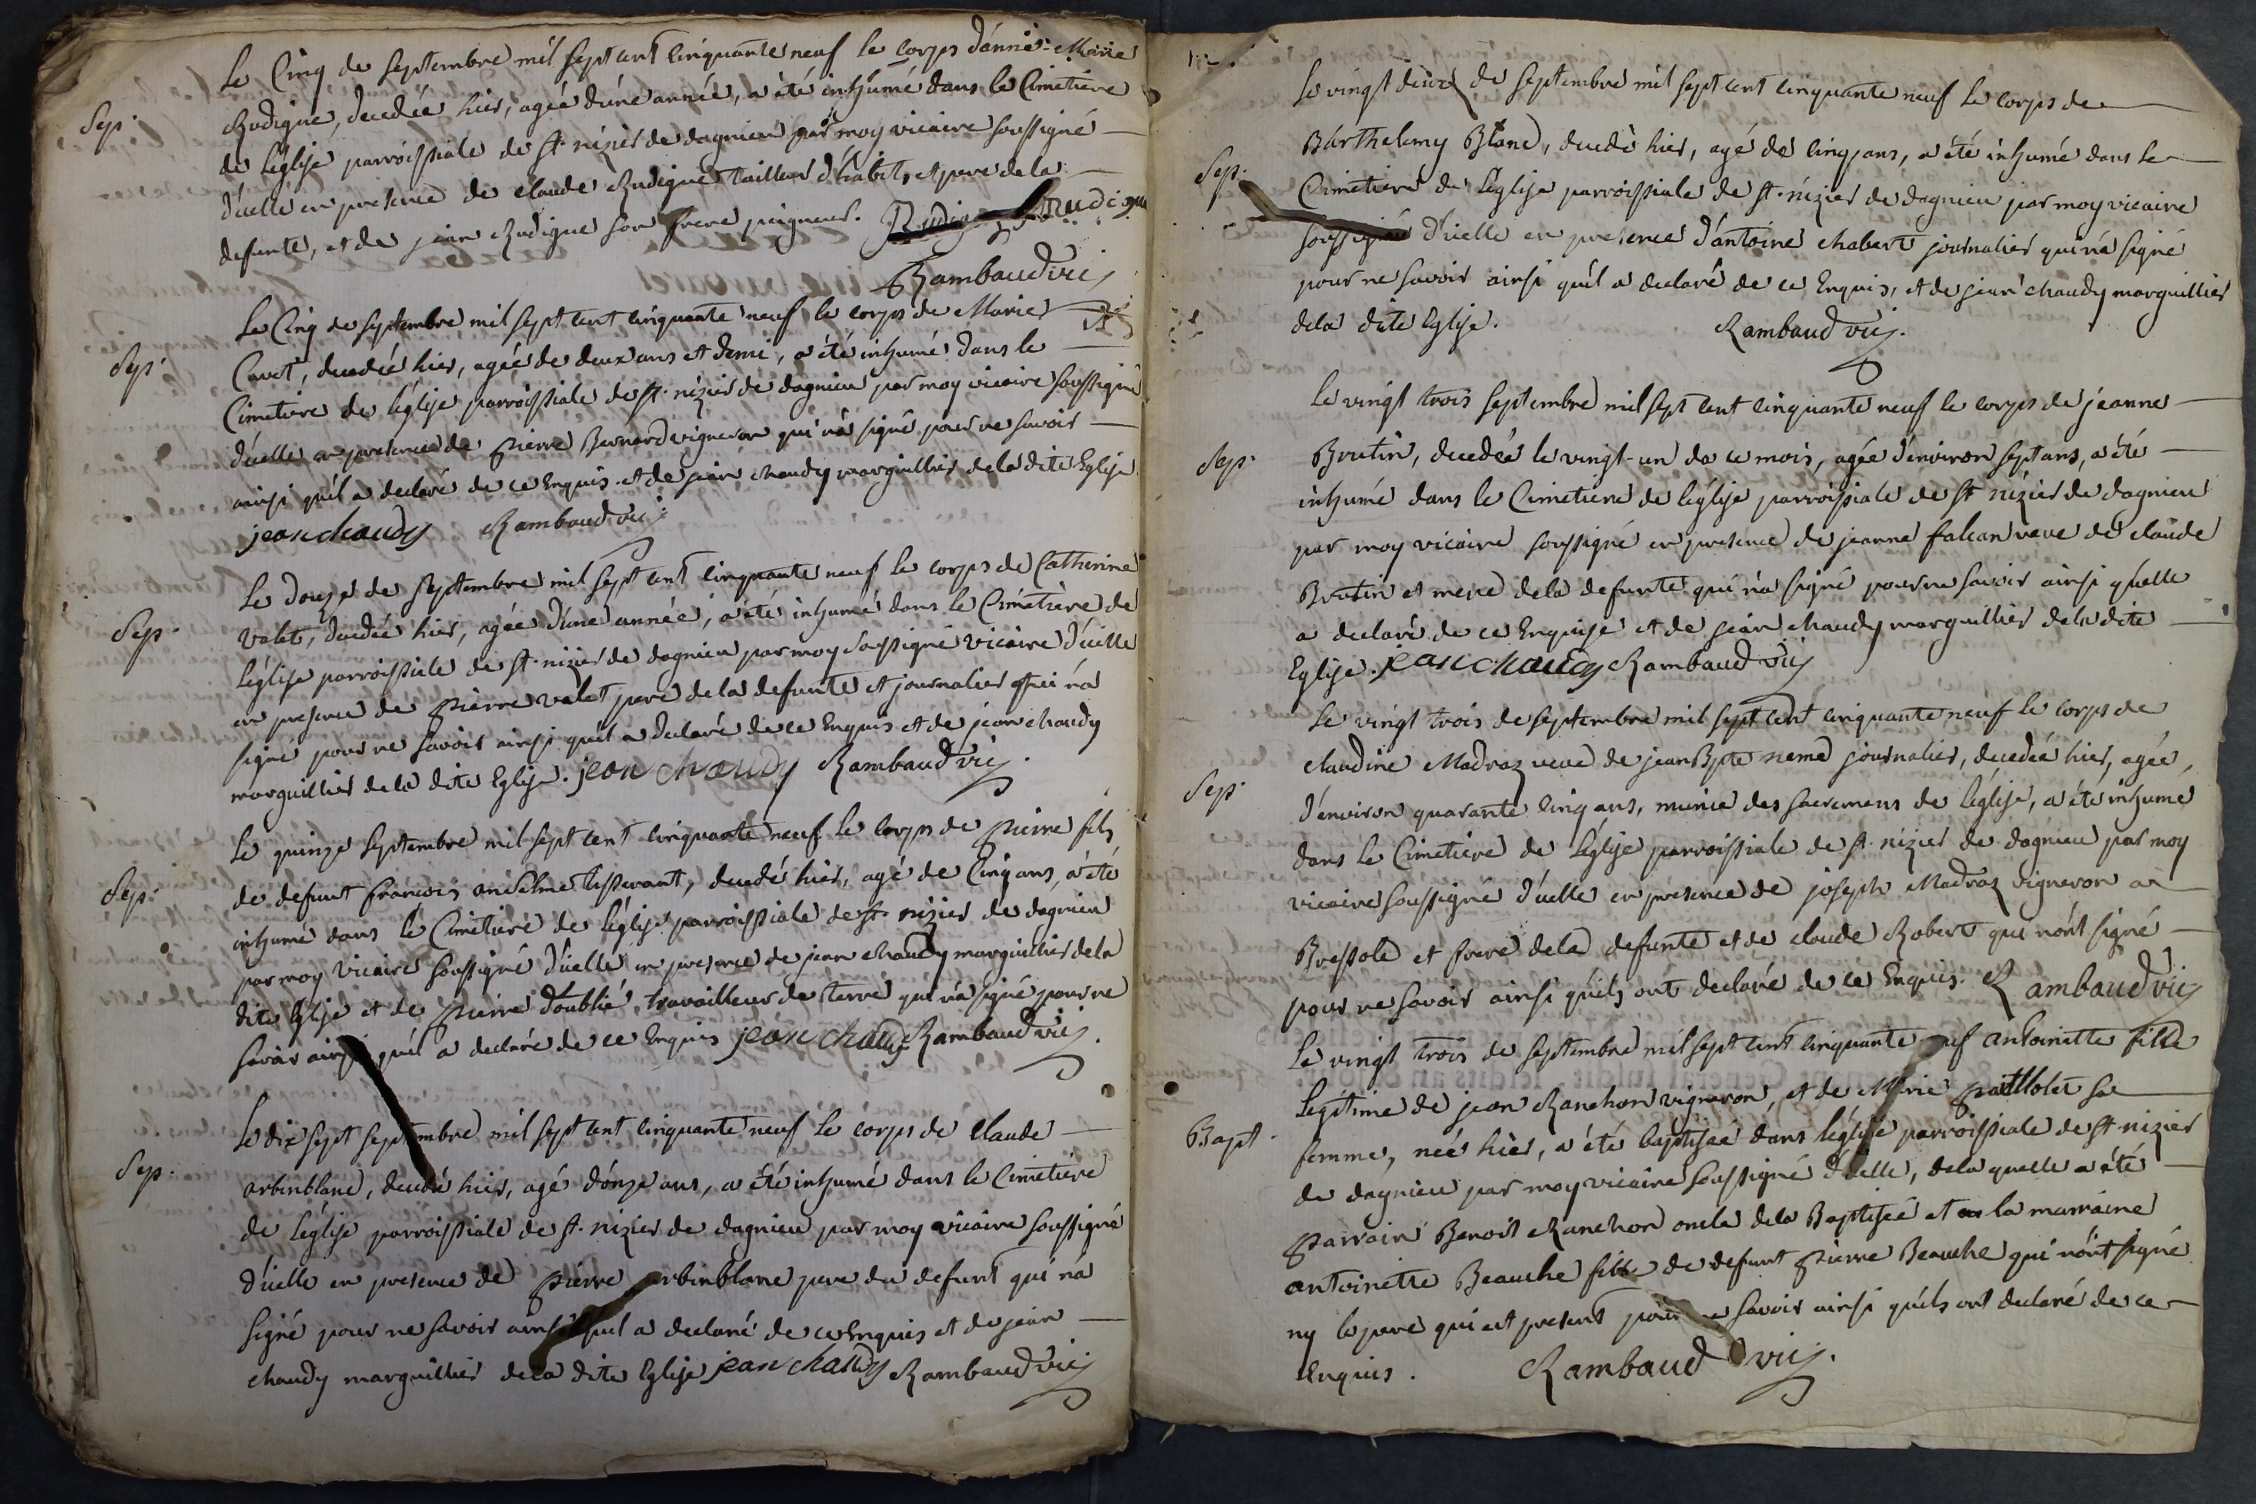 Le Cinq de septembre mil sept cent cinquante neuf le corps d'anne-Marie
Sep. Rudigue, decedée hier, agée d'une année, a été inhumé dans le Cimetiere
de l'église parroissiale de st. nizier de dagnieu par moy vicaire soussigné
d'icelle en presence de claude Rudigue tailleur d'habits, et pere de la
defunte, et de jean Rudigue son frere peigneur. Rudigue
Rambaud vic.
Le Cinq de septembre mil sept cent cinquante neuf le corps de Marie
Sep. Cavet, decedée hier, agée de deux ans et demi, a été inhumé dans le
Cimetiere de l'église parroissiale de st. nizier de dagnieu par moy vicaire soussigné
d'icelle en presence de pierre Bernard vigneron qui n'a signé pour ne savoir
ainsi qu'il a declaré de ce Enquis. et de jean chaudy marguillier de la dite Eglise
jean chaudy Rambaud vic.
Le douze de septembre mil sept cent cinquante neuf le corps de Catherine
Sep. valet, decedée hier, agée d'une année, a été inhumé dans le Cimetiere de
l'église parroissiale de st. nizier de dagnieu par moy soussigné vicaire d'icelle
en presence de pierre valet pere de la defunte et journalier qui n'a
signé pour ne savoir ainsi qu'il a declaré de ce Enquis et de jean chaudy
marguillier de la dite Eglise. jean chaudy Rambaud vic.
Le quinze septembre mil sept cent cinquante neuf le corps de pierre fils
Sep. de defunt francois anselme tisserant, decedé hier, agé de Cinq ans, a été
inhumé dans le Cimetiere de l'église parroissiale de st. nizier de dagnieu
par moy vicaire soussigné d'icelle en presence de jean chaudy marguillier de la
dite Eglise et de pierre doublié travailleur de terre qui n'a signé pour ne
savoir ainsi qu'il a declaré de ce Enquis jean chaudy Rambaud vic.
Le dix sept septembre mil sept cent cinquante neuf le corps de claude
Sep. arbinblanc, decedé hier, agé d'onze ans, a été inhumé dans le Cimetiere
de l'église parroissiale de st. nizier de dagnieu par moy vicaire soussigné
d'icelle en presence de pierre arbinblanc pere du defunt qui n'a
signé pour ne savoir ainsi qu'il a declaré de ce Enquis et de jean
chaudy marguillier de la dite Eglise jean chaudy Rambaud vic.
Le vingt deux de septembre mil sept cent cinquante neuf le corps de
Sep. Barthelemy Blanc, decedé hier, agé de cinq ans, a été inhumé dans le
Cimetiere de l'église parroissiale de st. nizier de dagnieu par moy vicaire
soussigné d'icelle en presence d'antoine chabert journalier qui n'a signé
pour ne savoir ainsi qu'il a declaré de ce Enquis, et de jean chaudy marguillier
de la dite Eglise. Rambaud vic.
Le vingt trois septembre mil sept cent cinquante neuf le corps de jeanne
Sep. Brutin, decedée le vingt-un de ce mois, agée d'environ sept ans, a été
inhumé dans le Cimetiere de l'église parroissiale de st nizier de dagnieu
par moy vicaire soussigné en presence de jeanne falcan veve de claude
Brutin et mere de la defunte qui n'a signé pour ne savoir ainsi qu'elle
a declaré de ce Enquise et de jean chaudy marguillier de la dite
Eglise. jean chaudy Rambaud vic.
Le vingt trois de septembre mil sept cent cinquante neuf le corps de
Sep. claudine Madraz veve de jean Bpte neme journalier, decedée hier, agée,
d'environ quarante cinq ans, munie des sacremens de l'église, a été inhumé
dans le Cimetiere de l'église parroissiale de st. nizier de dagnieu par moy
vicaire soussigné d'icelle en presence de joseph Madraz vigneron a
Bressole et frere de la defunte et de claude Robert qui n'ont signé
pour ne savoir ainsi qu'ils ont declaré de ce Enquis. Rambaud vic.
Le vingt trois de septembre mil sept cent cinquante neuf antoinette fille
legitime de jean Ranchon vigneron, et de Marie paillolet sa
Bapt. femme, née hier, a été baptisée dans l'église parroissiale de st. nizier
de dagnieu par moy vicaire soussigné d'icelle, de la quelle a été
parrain Benoit Ranchon oncle de la Baptisée et la marraine
antoinette Beauche fille de defunt pierre Beauche qui n'ont signé
ny le pere qui est present pour ne savoir ainsi qu'ils ont declaré de ce
Enquis. Rambaud vic.